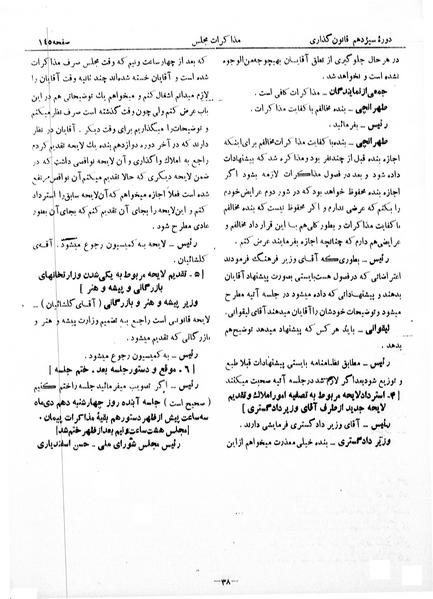 دورهٔ سیزدهم قانون گذاری
مذاکرات مجلس
صفحه ۱۴۵
در هر حال جلوگیری از نطق آقایان بهیچوجه من الوجوه
نشده است و نخواهد شد.
جمعی از نمایندگان ــ مذاکرات کافی است.
طهرانچی ــ بنده مخالفم با کفایت مذاکرات.
رئیس ــ بفرمائید.
طهرانچی ــ بنده با کفایت مذاکرات مخالفم برای اینکه
اجازه بنده قبل از چند نفر بود و مذاکره شد که پیشنهادات
داده شود و بعد در فصول مذاکرات لازمه بشود اگر
اجازه بنده محفوظ خواهد بود که در شور دوم عرایض خودم
را بکنم که عرضی ندارم و اگر محفوظ نیست که بنده مخالفم
با کفایت مذاکرات و بطور کلی هم با این قرارداد مخالفم و
عرایضی هم دارم که چنانچه اجازه بفرمائید عرض کنم.
رئیس ــ بطوریکه آقای وزیر فرهنگ فرمودند
اعتراضاتی که در فصول هست بایستی بصورت پیشنهاد آقایان
بدهند و پیشنهاداتی که داده میشود در جلسه آتیه مطرح
میشود و توضیحات خودشان را آقایان میدهند آقای لیقوانی.
لیقوانی ــ باید هر کس که پیشنهاد میدهد توضیح هم
بدهد.
رئیس ــ مطابق نظامنامه بایستی پیشنهادات قبلا طبع
و توزیع شود بعد اگر لازم شد در جلسه آتیه صحبت میکنند
[۴ـ استرداد لایحه مربوط به تصفیه امور املاک و تقدیم
لایحه جدید از طرف آقای وزیر دادگستری]
رئیس ــ آقای وزیر دادگستری فرمایشی دارید.
وزیر دادگستری ــ بنده خیلی معذرت میخواهم از این
که بعد از چهار ساعت و نیم که وقت مجلس صرف مذاکرات
شده است و آقایان خسته شده‌اند چند ثانیه وقت آقایان را
لازم میدانم اشغال کنم و میخواهم یک توضیحاتی هم در این
باب عرض کنم ولی چون وقت گذشته است صرف نظر میکنم
و توضیحات را میگذاریم برای وقت دیگر. آقایان در نظر
دارند که در آخر دوره دوازدهم بنده یک لایحه تقدیم کردم
راجع به املاک واگذاری و آن لایحه نواقصی داشت که در
ضمن لایحه دیگری که حالا تقدیم میکنم آن نواقص مرتفع
شده است فعلا اجازه میخواهم که آن لایحه سابق را استرداد
کنم و این لایحه را بجای آن تقدیم کنم که بجای آن بطور
عادی مطرح شود.
رئیس ــ لایحه به کمیسیون رجوع میشود. آقای
گلشائیان.
[۵ـ تقدیم لایحه مربوط به یکی شدن وزارتخانهای
بازرگانی و پیشه و هنر]
وزیر پیشه و هنر و بازرگانی (آقای گلشائیان) ــ
لایحه قانونی است راجع به تصمیم وزارت پیشه و هنر و
بازرگانی که تقدیم میشود.
رئیس ــ به کمیسیون رجوع میشود.
[۶ـ موقع و دستور جلسه بعد ـ ختم جلسه]
رئیس ــ اگر تصویب میفرمائید جلسه را ختم کنیم
(صحیح است) جلسه آینده روز چهارشنبه دهم دی ماه
سه ساعت پیش از ظهر دستور هم بقیه مذاکرات پیمان.
[مجلس هشت ساعت و نیم بعد از ظهر ختم شد]
رئیس مجلس شورای ملی ــ حسن اسفندیاری
ــ۳۸ــ